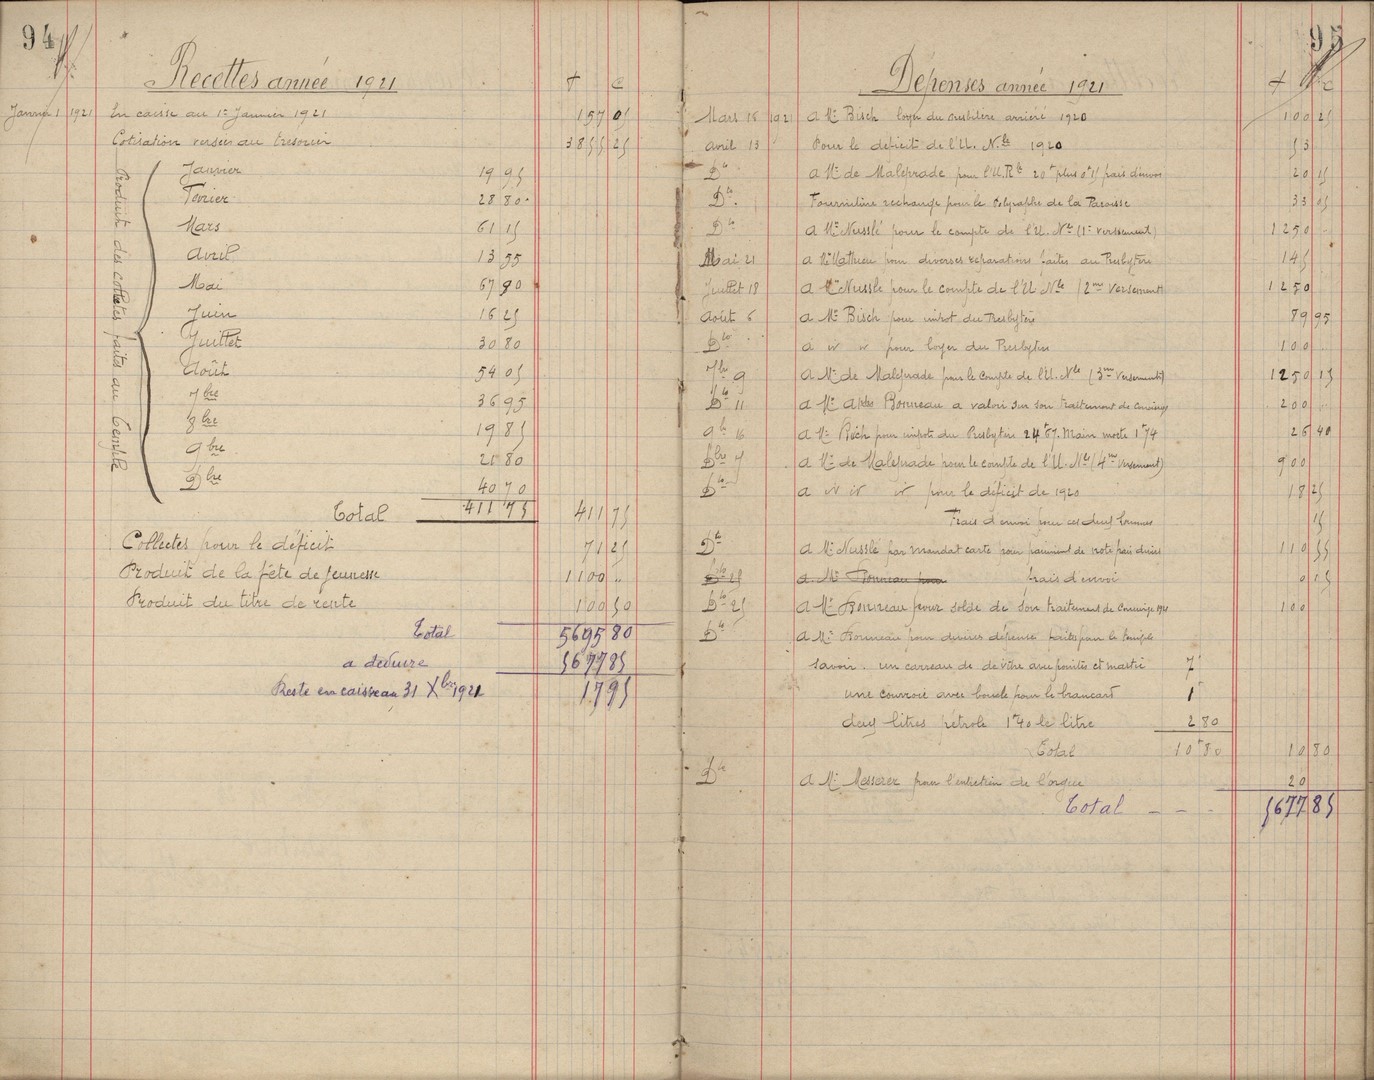 94
Recettes année 1921
f c
Janvier 1 1921 En caisse au 1er Janvier 1921 157 05
Cotisation versées au trésorier 3855 25
Produit des collectes faites au temple
Janvier 19 95
Février 28 80
Mars 61 15
Avril 13 55
Mai 67 90
Juin 16 25
Juillet 30 80
Août 54 05
7bre 36 95
8bre 19 85
9bre 21 80
Dbre 40 70
Total 411 75 411 75
Collectes pour le déficit 71 25
Produit de la fête de Jeunesse 1100 "
Produit du titre de rente 100 50
Total 5695 80
a déduire 5677 85
Reste en caisse au 31 Xbre 1921 17 95
95
Dépenses année 1921
f c
Mars 16 1921 a Mr Bisch loyer du presbitère arriéré 1920 100 25
avril 13 Pour le déficit de l'U. Nle 1920 53
Dto a Mr de Maleprade pour l'U. Rle 20f plus 0f15 frais d'envoi 20 15
Dto Fourniture rechange pour le polygraphe de la Paroisse 33 05
Dto a Mr Nusslé pour le compte de l'U. Nle (1er versement) 1250
Mai 21 a Mr Mathieu pour diverses réparations faites au Presbytère 145
Juillet 18 a Mr Nusslé pour le compte de l'U Nle (2me versement) 1250
Août 6 a Mr Bisch pour impot du Presbytère 89 95
Dto a " " pour loyer du Presbytère 100
7bre 9 a Mr de Maleprade pour le compte de l'U. Nle (3me versement) 1250 15
Dto 11 a Mr Bonneau a valoir sur son traitement de concierge 200
9bre 16 a Mr Bisch pour impots du Presbytère Main morte 1f74 26 40
Dbre 7 a Mr de Maleprade pour le compte de l'U. Nle (4me versement) 900
Dto a " " " pour le déficit de 1920 18 25
Frais d'envoi pour ces deux sommes 15
Dto a Mr Nusslé par mandat carte pour paiement de frais divers 110 55
Dto 25 a Mr Bonneau pour frais d'envoi 0 15
Dto 25 a Mr Bonneau pour solde de son traitement de concierge 1921 100
Dto a Mr Bonneau pour diverses dépenses faites pour le temple
savoir. un carreau de vitre avec pointes et mastic 7f
une courroie avec boucle pour le brancart 1f
deux litres pétrole 1f40 le litre 2 80
Total 10f80 10 80
Dto a Mr Messerer pour l'entretien de l'orgue 20
Total – – 5677 85